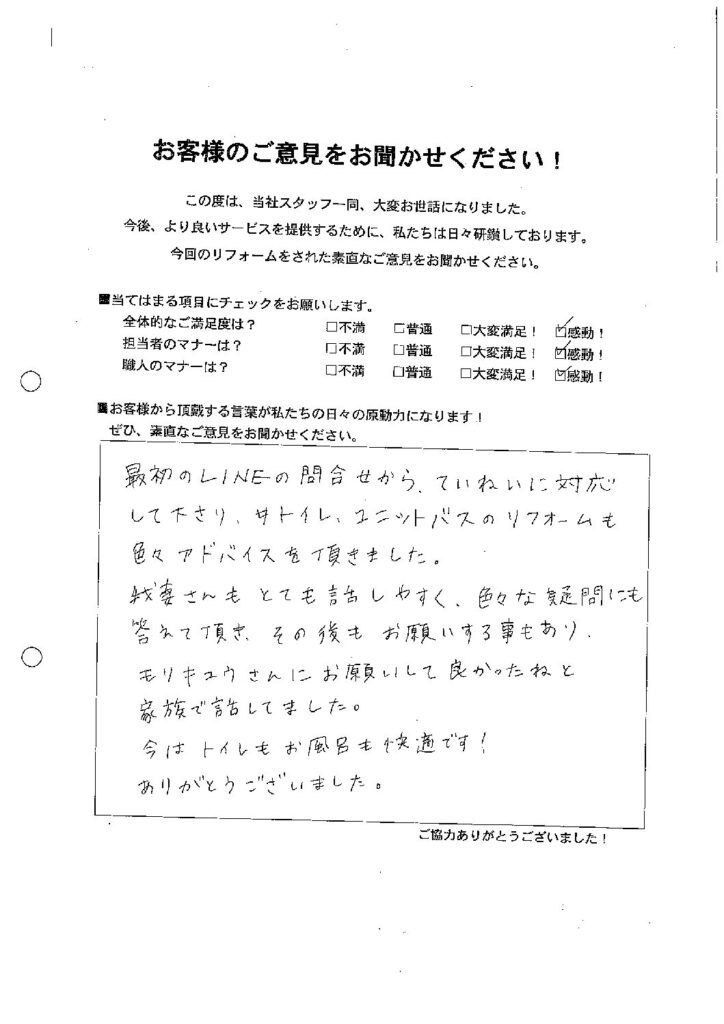 お客様のご意見をお聞かせください！
この度は、当社スタッフ一同、大変お世話になりました。
今後、より良いサービスを提供するために、私たちは日々研鑽しております。
今回のリフォームをされた素直なご意見をお聞かせください。
■当てはまる項目にチェックをお願いします。
全体的なご満足度は？ □不満 □普通 □大変満足！ ☑感動！
担当者のマナーは？ □不満 □普通 □大変満足！ ☑感動！
職人のマナーは？ □不満 □普通 □大変満足！ ☑感動！
■お客様から頂戴する言葉が私たちの日々の原動力になります！
ぜひ、素直なご意見をお聞かせください。
最初のLINEの問合せから、ていねいに対応
して下さり、トイレ、ユニットバスのリフォームも
色々アドバイスを頂きました。
妻さんもとても話しやすく、色々な疑問にも
答えて頂き、その後もお願いする事もあり、
モリキュウさんにお願いして良かったねと
家族で話してました。
今はトイレもお風呂も快適です！
ありがとうございました。
ご協力ありがとうございました！